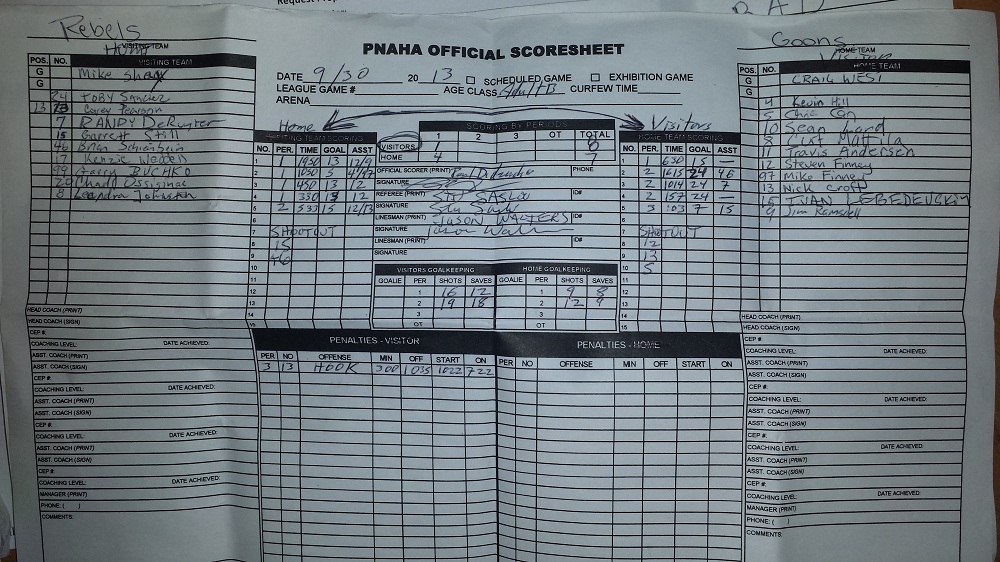 Request
Rebels
Home
VISITING TEAM
PNAHA OFFICIAL SCORESHEET
Goons
HOME TEAM
POS. NO. VISITING TEAM
G Mike
G
24 TOBY Sanchez
13 73 Corey
7 RANDY DeRuyter
15 Garrett Still
46 Brian
17 Kenzie
99 BUCHKO
Chad
8 Leandra Johnston
DATE 9/30 2013 SCHEDULED GAME EXHIBITION GAME
LEAGUE GAME # AGE CLASS Adult B CURFEW TIME
ARENA
Home
VISITING TEAM SCORING
NO. PER. TIME GOAL ASST
1 1 1950 13 12/9
2 1 1050 5
3 1 450 13 12
4 1 330 9 12
5 2 533 15 12/13
6
7 SHOOTOUT
8 15
9 46
10
11
12
13
14
15
SCORING BY PERIODS
1 2 3 OT TOTAL
VISITORS 1
HOME 4 7
OFFICIAL SCORER (PRINT) PHONE
SIGNATURE
REFEREE (PRINT) ID#
SIGNATURE
LINESMAN (PRINT) JASON WALTERS ID#
SIGNATURE
LINESMAN (PRINT) ID#
SIGNATURE
VISITORS GOALKEEPING
GOALIE PER SHOTS SAVES
1 16 12
2 19 18
3
OT
HOME GOALKEEPING
GOALIE PER SHOTS SAVES
1 9 8
2 12 9
3
OT
Visitors
HOME TEAM SCORING
NO. PER. TIME GOAL ASST
1 1 630 15 —
2 2 1615 24 46
3 2 1014 24 7
4 2 157 24 —
5 3 103 7 15
6
7 SHOOTOUT
8 12
9 13
10 5
11
12
13
14
15
POS. NO. HOME TEAM
G CRAIG WEST
G
4 Kevin Hill
5 Chris
10 Sean
8 Curt Mattila
11 Travis Andersen
12 Steven Finney
97 Mike Finney
13 Nick Croft
15 IVAN
9 Jim Ramsdell
HEAD COACH (PRINT)
HEAD COACH (SIGN)
CEP #:
COACHING LEVEL: DATE ACHIEVED:
ASST. COACH (PRINT)
ASST. COACH (SIGN)
CEP #:
COACHING LEVEL: DATE ACHIEVED:
ASST. COACH (PRINT)
ASST. COACH (SIGN)
CEP #:
COACHING LEVEL: DATE ACHIEVED:
ASST. COACH (PRINT)
ASST. COACH (SIGN)
CEP #:
COACHING LEVEL: DATE ACHIEVED:
MANAGER (PRINT)
PHONE: ( )
COMMENTS:
PENALTIES - VISITOR
PER NO OFFENSE MIN OFF START ON
3 13 HOOK 300 1035 1022 722
PENALTIES - HOME
PER NO OFFENSE MIN OFF START ON
HEAD COACH (PRINT)
HEAD COACH (SIGN)
CEP #:
COACHING LEVEL: DATE ACHIEVED:
ASST. COACH (PRINT)
ASST. COACH (SIGN)
CEP #:
COACHING LEVEL: DATE ACHIEVED:
ASST. COACH (PRINT)
ASST. COACH (SIGN)
CEP #:
COACHING LEVEL: DATE ACHIEVED:
ASST. COACH (PRINT)
ASST. COACH (SIGN)
CEP #:
COACHING LEVEL: DATE ACHIEVED:
MANAGER (PRINT)
PHONE: ( )
COMMENTS: